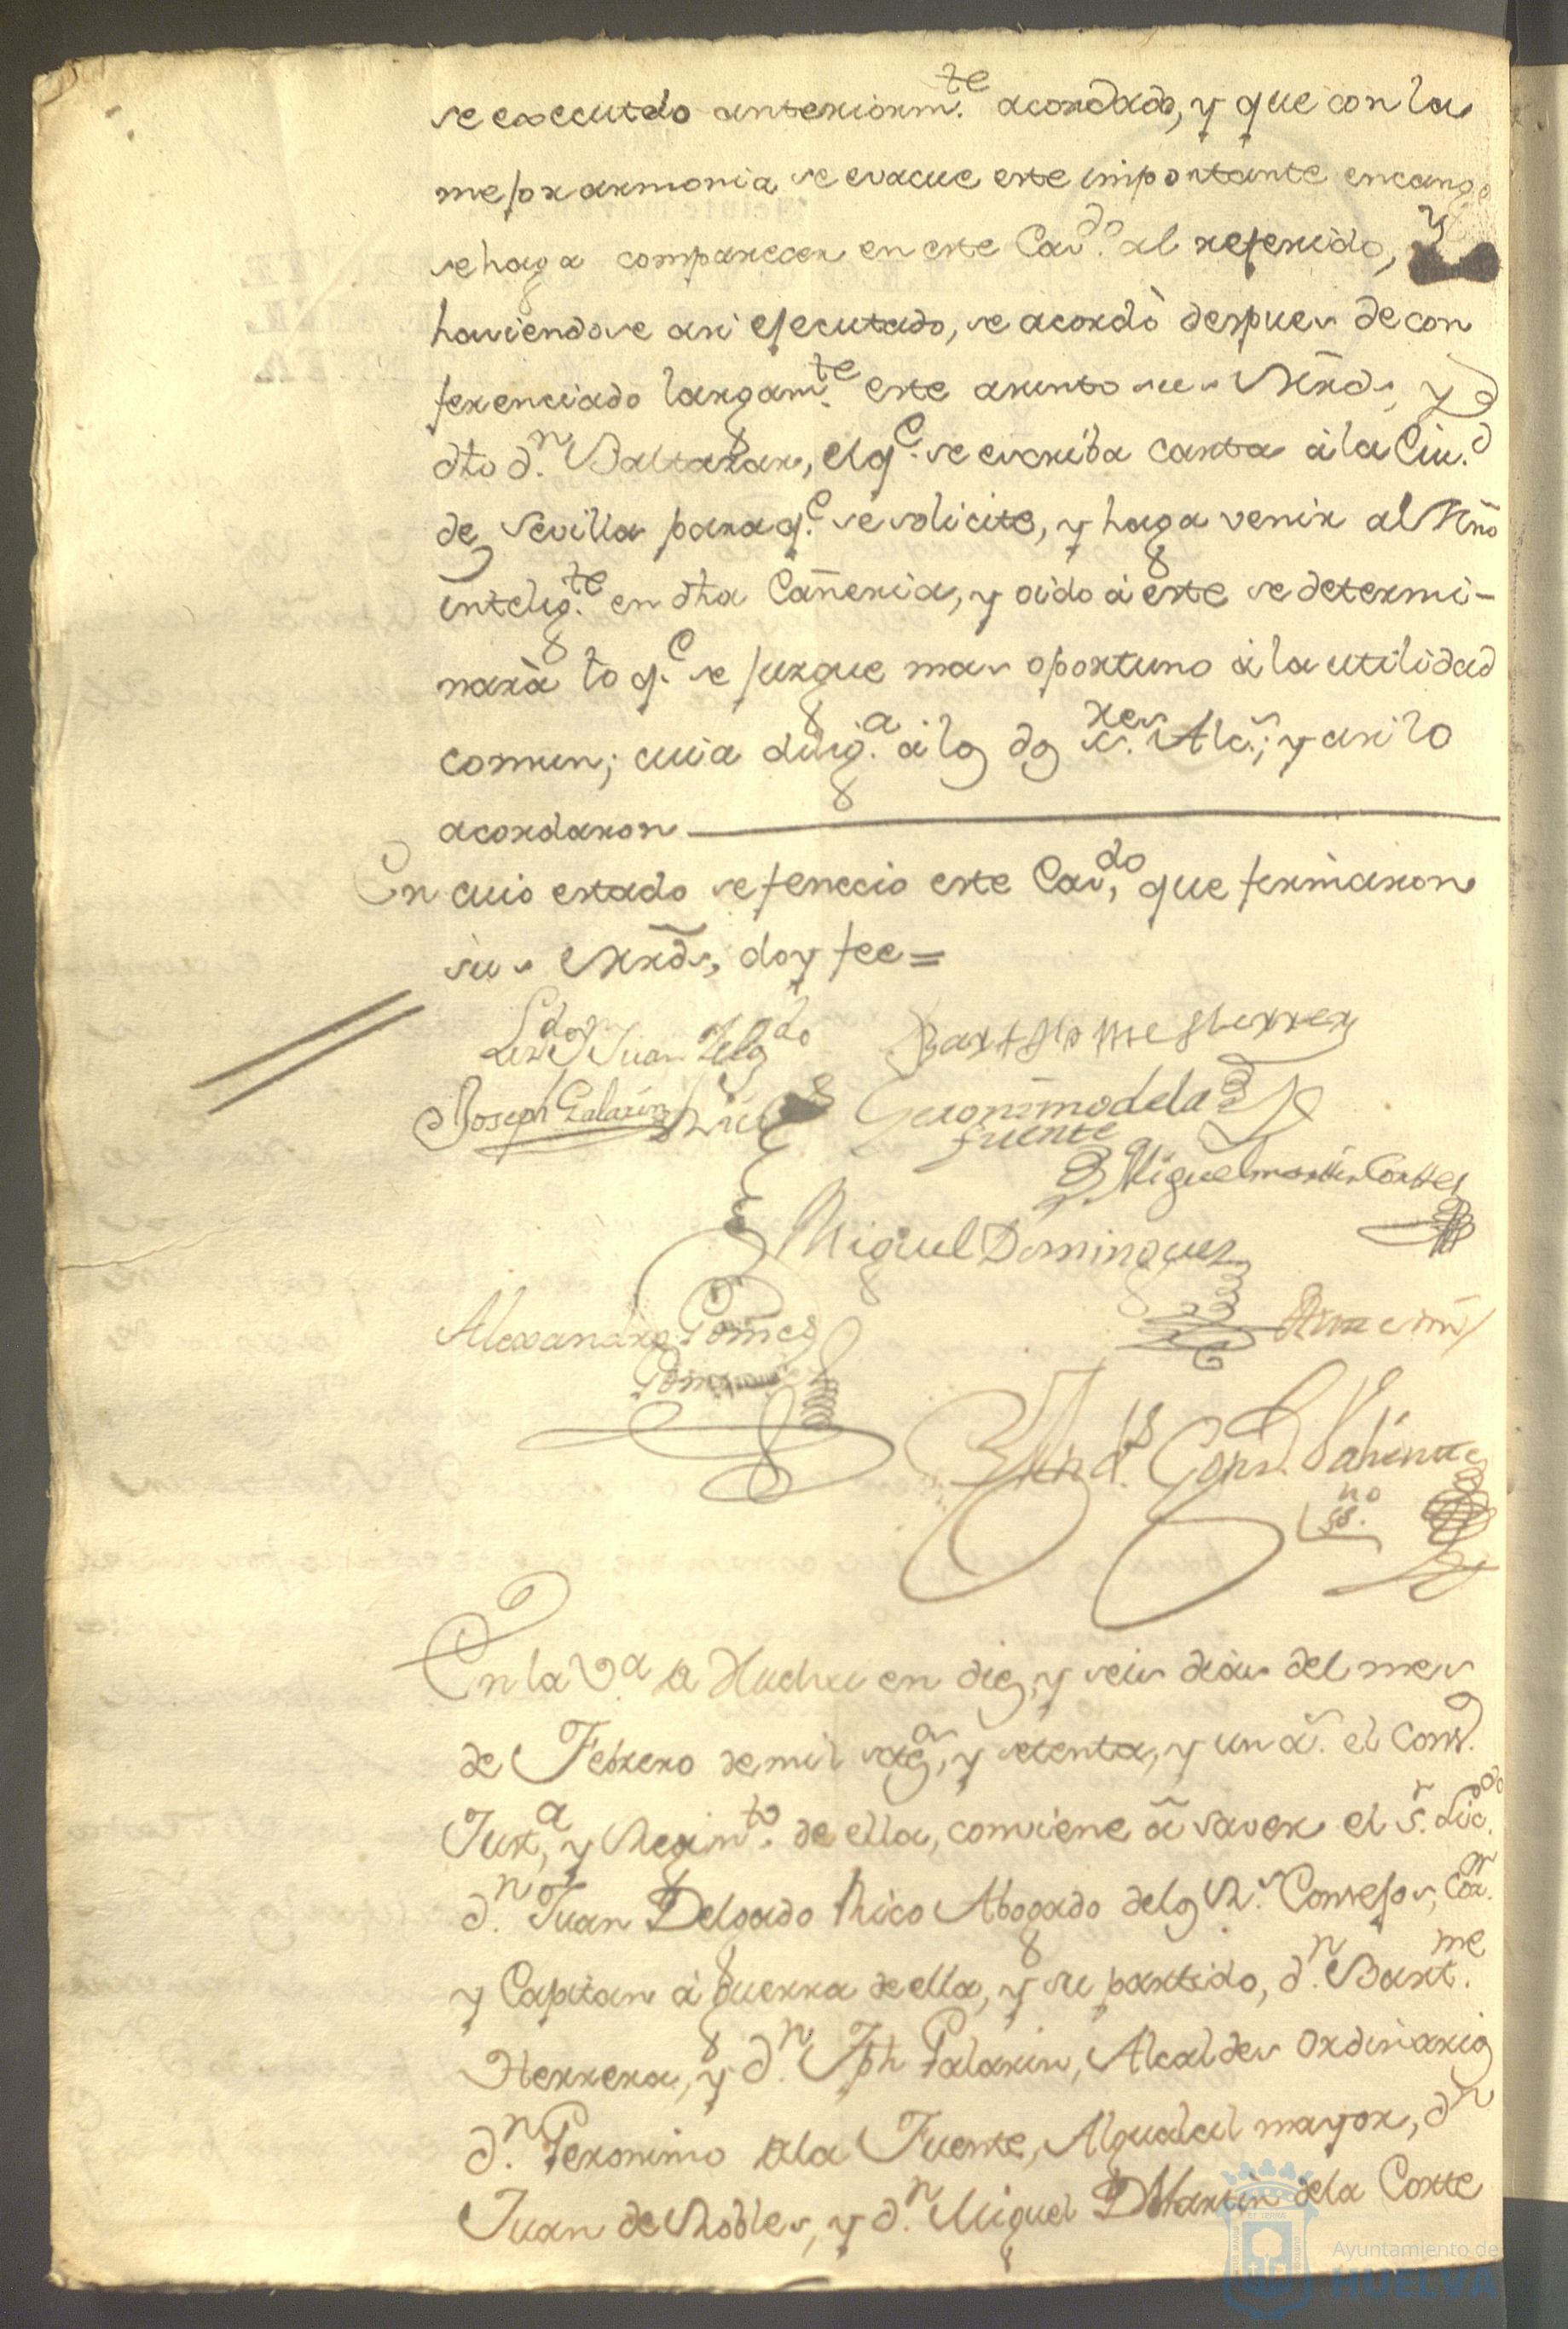 se executdo anteriorm.te acordado, y que con la
mejor armonia se evacue este importante encargo
se haga comparecer en este Cav.do al referido, y
haviendose asi ejecutado, se acordò despues de con
ferenciado largam.te este asunto sus Mrds, y
dho d.n Baltazar, el q.e se escriba carta à la Ciu.d
de Sevilla para q.e se solicite, y haga venir al Mro
intelig.te en dha Cañeria, y oido à este se determi-
narà lo q.e se jusgue mas oportuno à la utilidad
comun; cuia dilig.a
acordaron
En cuio estado se fenecio este Cav.do, que firmaron
sus Mrds, doy fee=
Lizdo Dn Juan Delgdo Bartholome Herrera
Joseph Galarin Geronimo de la
fuente
Miguel martin Cortes
Miguel Dominguez
Alexandro Gomes
Gonz. Vahimte
no
ss.
En la V.a de Huelva en diez, y seis dias del mes
de Febrero de mil setez.os, y setenta, y un a.s el Cons.
Just.a, y Regim.to de ella, comviene à saver el s.r Lic.do
d.n Juan Delgado Rico Abogado de los R.s Consejos, Cor.r
y Capitan à guerra de ella, y su partido, d.n Bart.me
Herrera, y d.n Jph Galarin, Alcaldes Ordinarios
d.n Geronimo de la Fuente, Alguacil mayor, d.n
Juan de Robles, y d.n Miguel Martin de la Corte
Ayuntamiento de
HUELVA